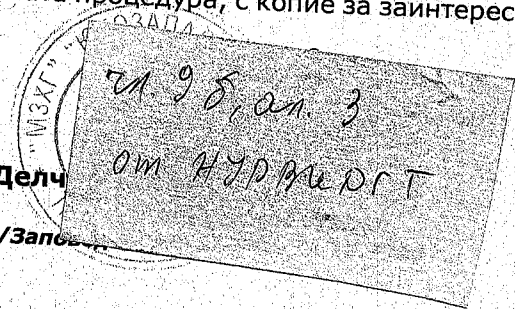 процедура, с копие за заинтерес
"МЗХГ"
ОЗАПА
чл. 9 б, ал. 3
от НУРВИДГТ
Делч
/Запов